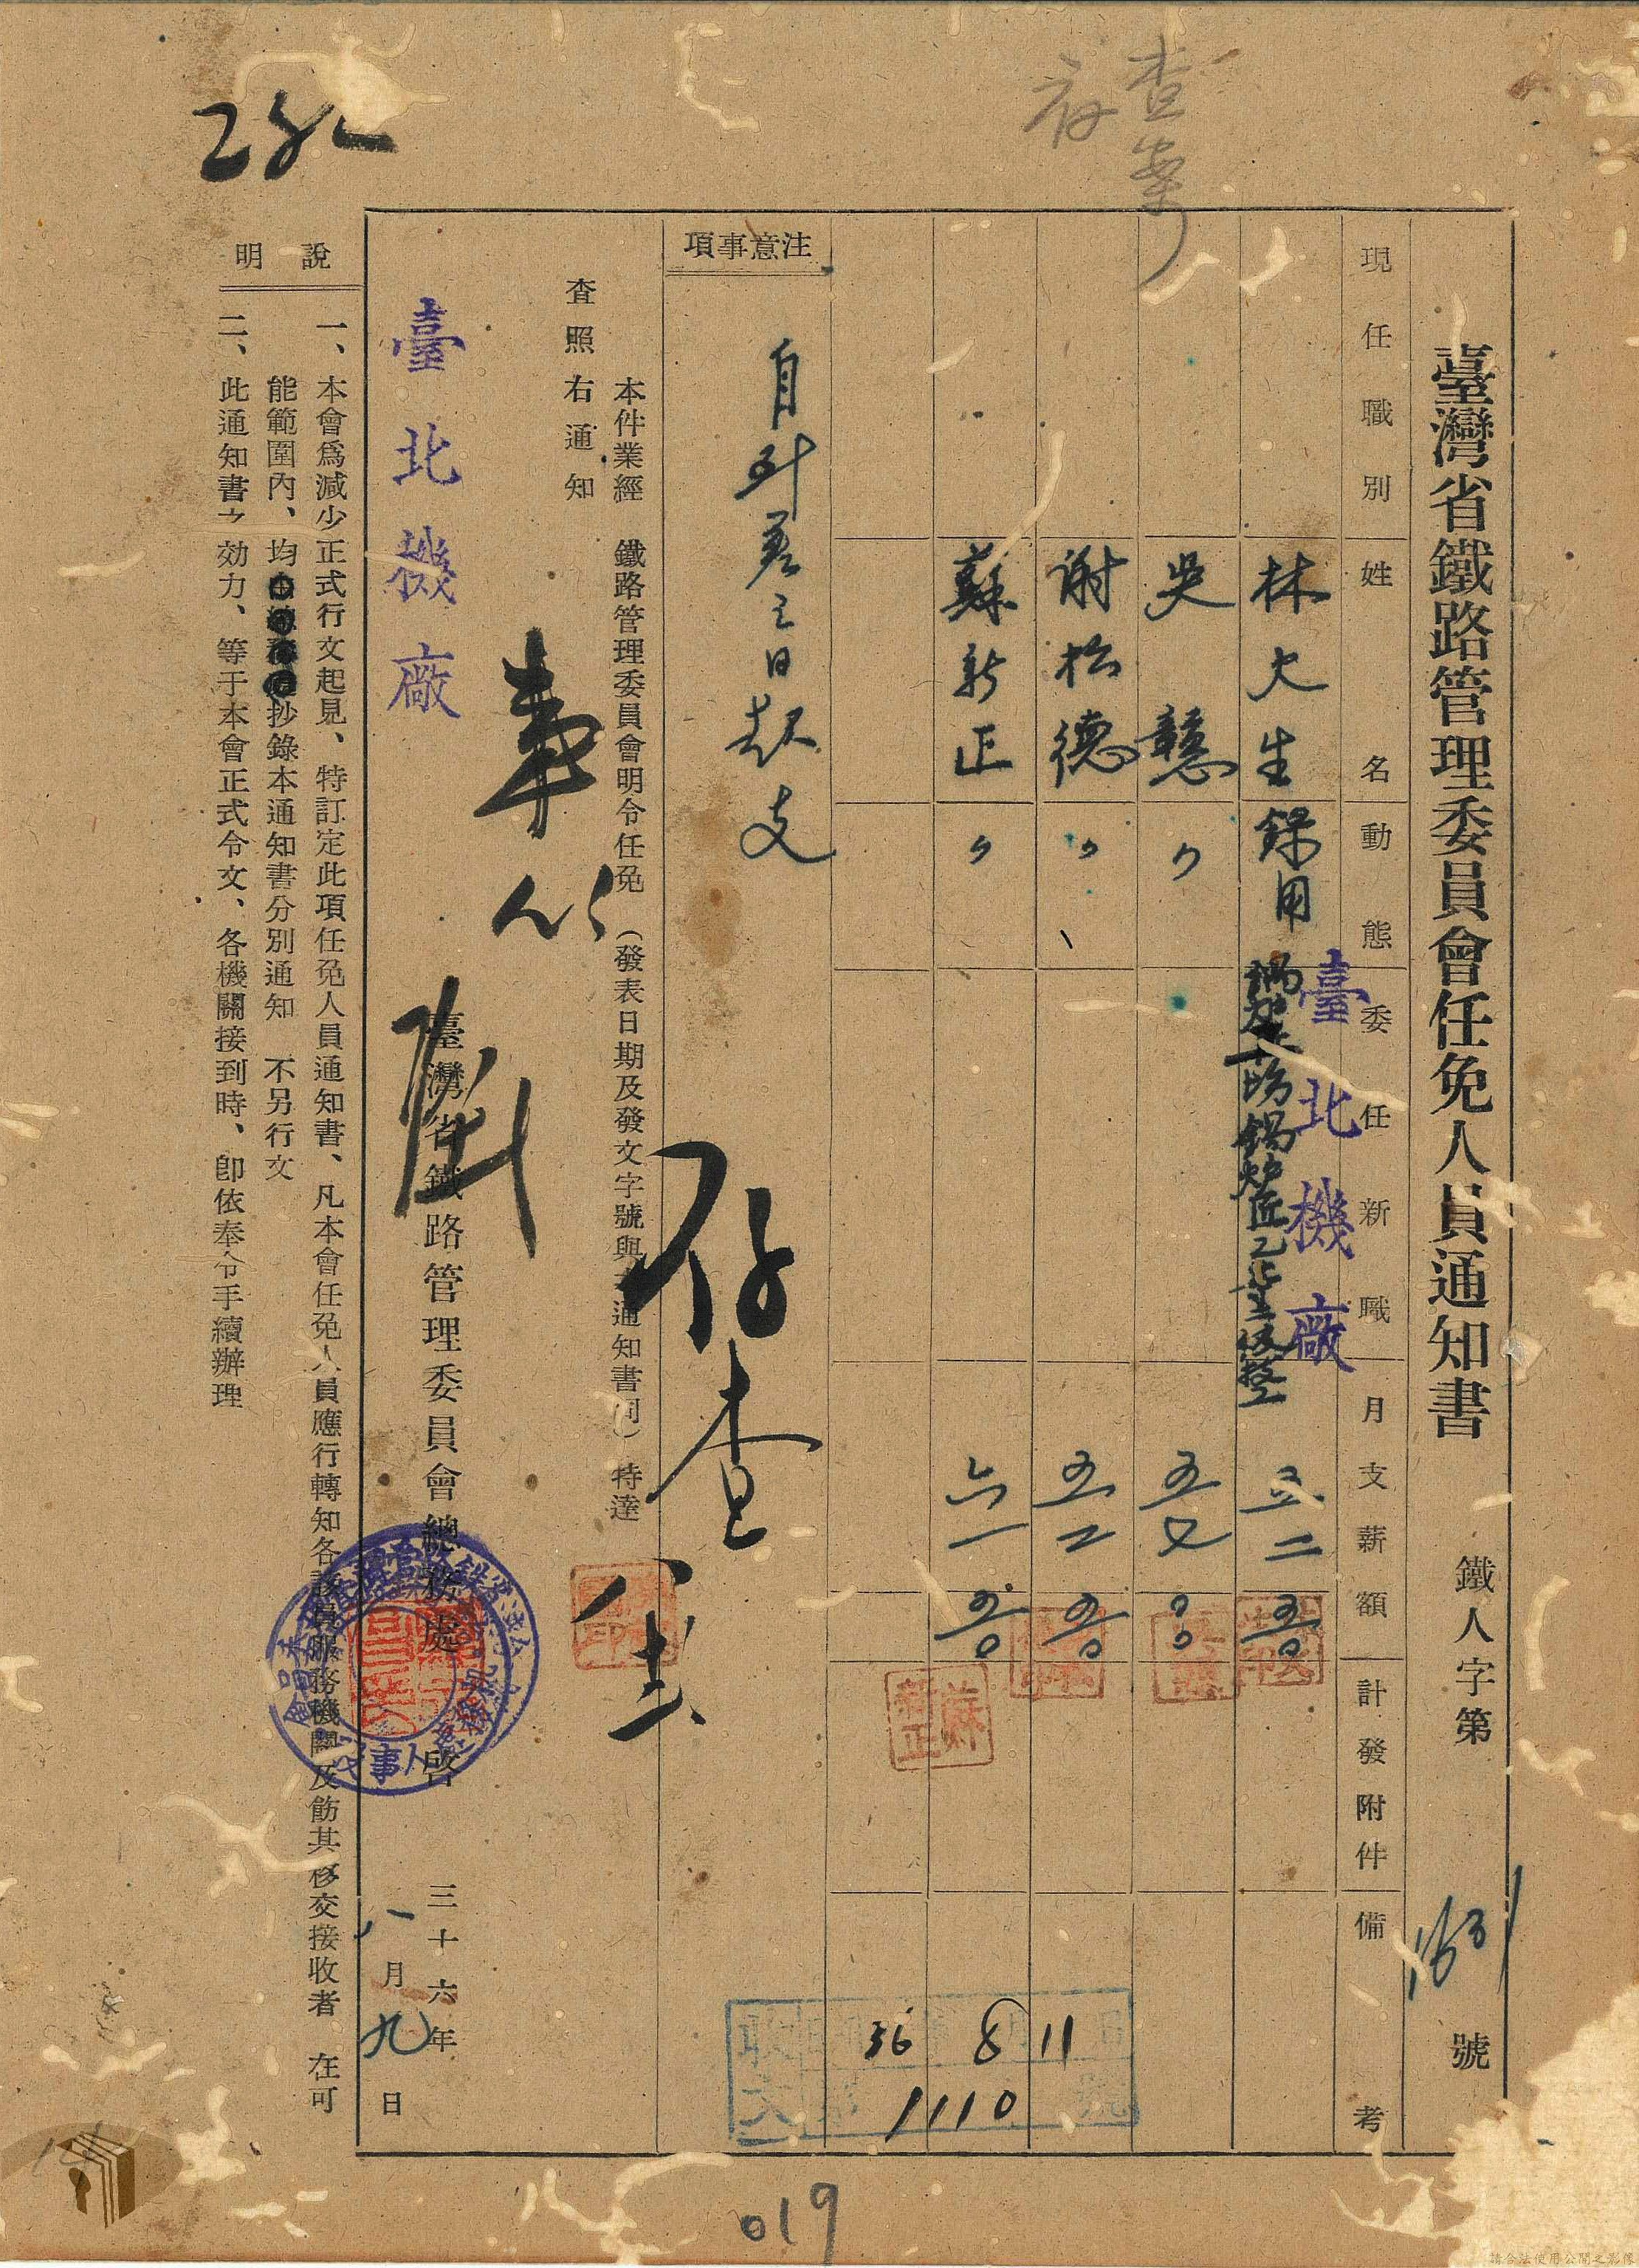 查案
存
臺灣省鐵路管理委員會任免人員通知書 鐵人字第 1631 號
現任職別 姓名 動態 委任新職 月支薪額 計發附件 備考
臺北機廠
林火生 錄用 五二 五〇
吳戇 〃
謝松德 〃 五二 五〇
蘇新正 〃 六一 五〇
蘇新正
注意事項
自到差之日起支
存查
本件業經 鐵路管理委員會明令任免(發表日期及發文字號與本通知書同)特達
查照右通知
臺北機廠
臺灣省鐵路管理委員會總務處 啓
三十六年
八月九日
收文
36 8 11
1110
說明
一、本會爲減少正式行文起見、特訂定此項任免人員通知書、凡本會任免人員應行轉知各該員服務機關及飭其移交接收者 在可
能範圍內、均 抄錄本通知書分別通知 不另行文
二、此通知書之効力、等于本會正式令文、各機關接到時、卽依奉令手續辦理
019
請合法使用公開之影像